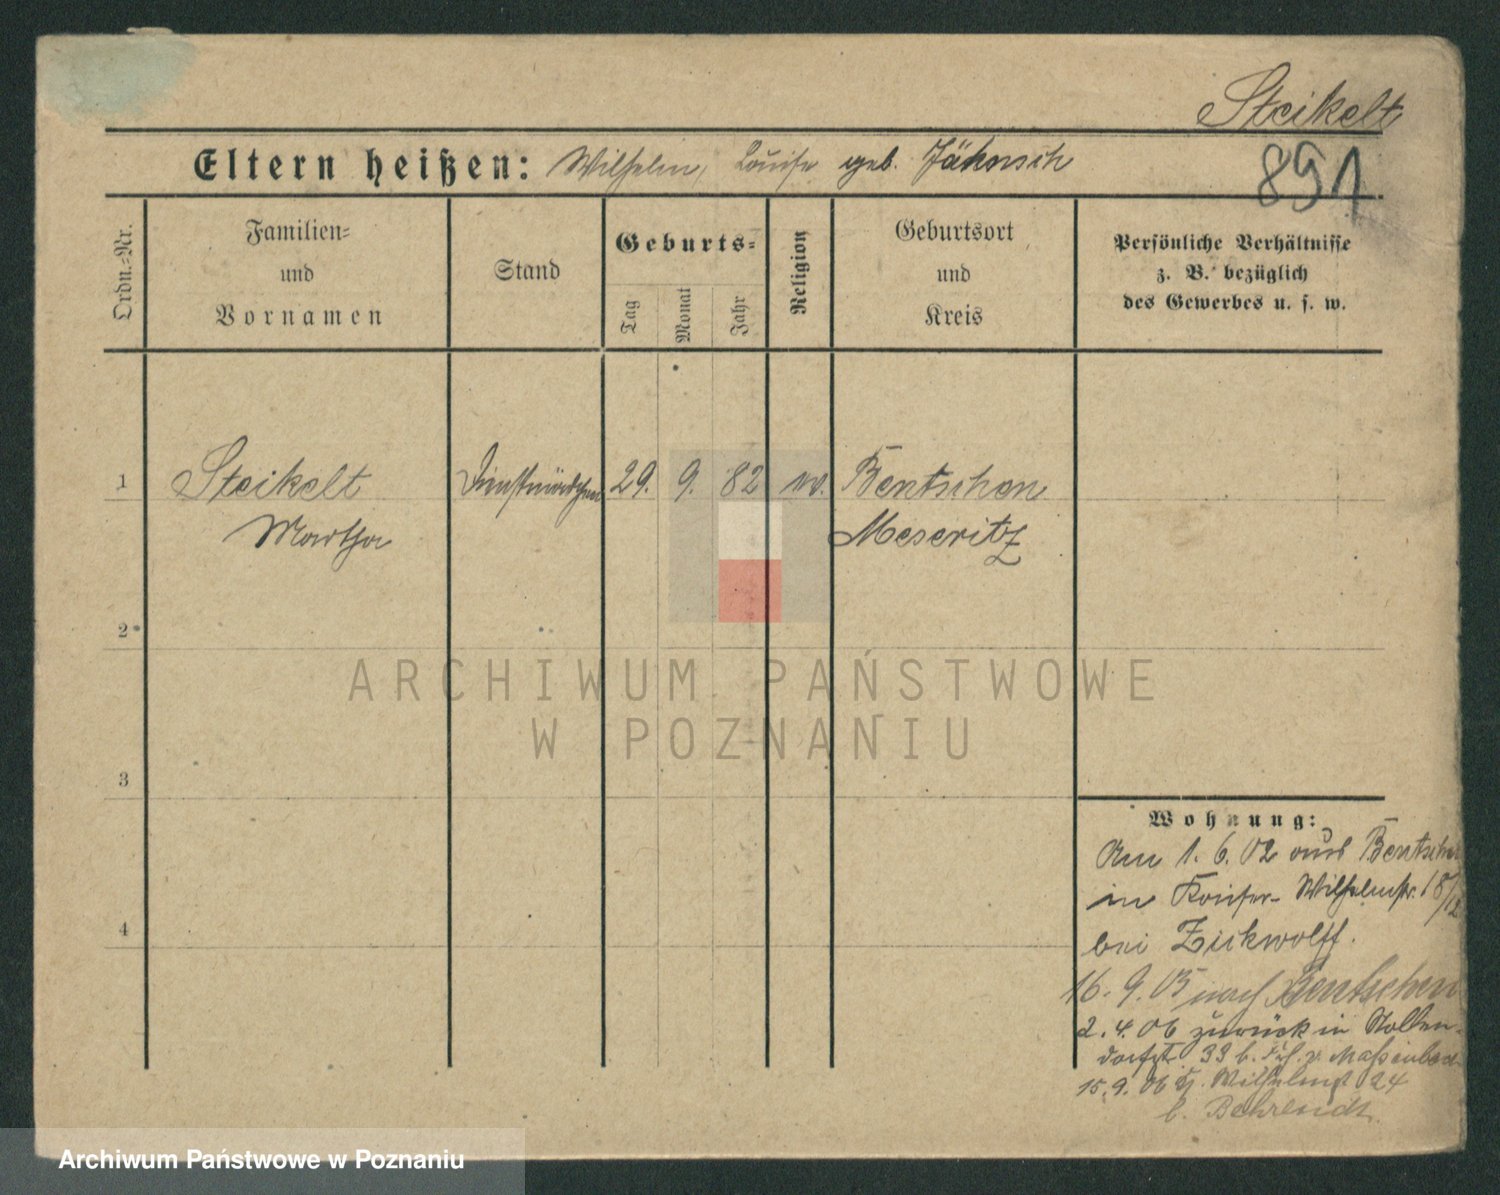 Steikelt
Eltern heißen: Wilhelm, Louise geb. Jähnsch
891
Ordn.-Nr.
Familien-
und
Vornamen
Stand
Geburts-
Tag
Monat
Jahr
Religion
Geburtsort
und
Kreis
Persönliche Verhältnisse
z. B. bezüglich
des Gewerbes u. s. w.
1 Steikelt Dienstmädchen 29. 9. 82 Bentschen
Martha Meseritz
2
3
4
ARCHIWUM PAŃSTWOWE
W POZNANIU
Wohnung:
Am 1. 6. 02 aus Bentschen
in Wilhelmstr. 18/12
bei Zickwolff.
16. 9. 05 nach Bentschen
2. 4. 06 zurück in Nollen-
dorfst 33 b. Frl. v. Maßenbach
15. 9. 06 Wilhelmst 24
b. Behrendt
Archiwum Państwowe w Poznaniu